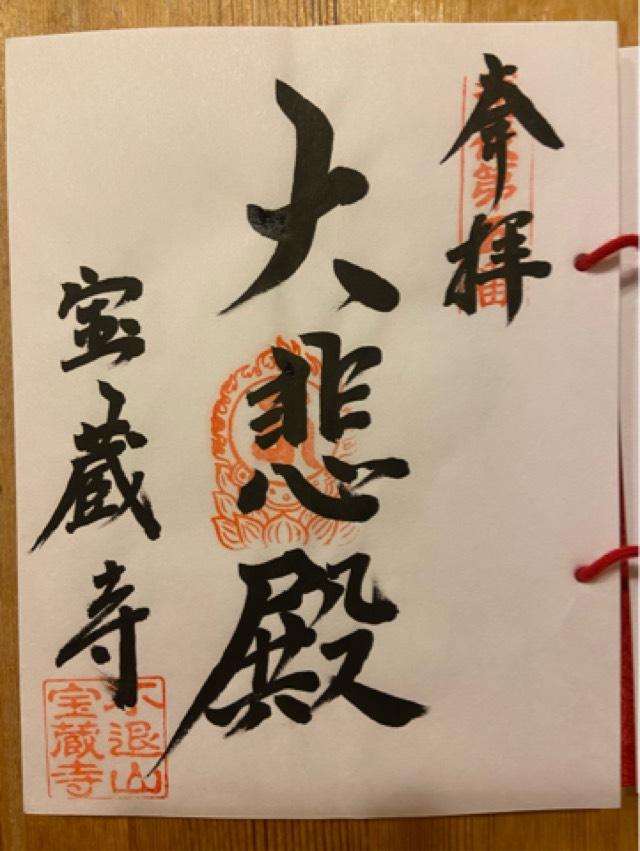 奉拝
大悲殿
宝蔵寺
不退山
宝蔵寺